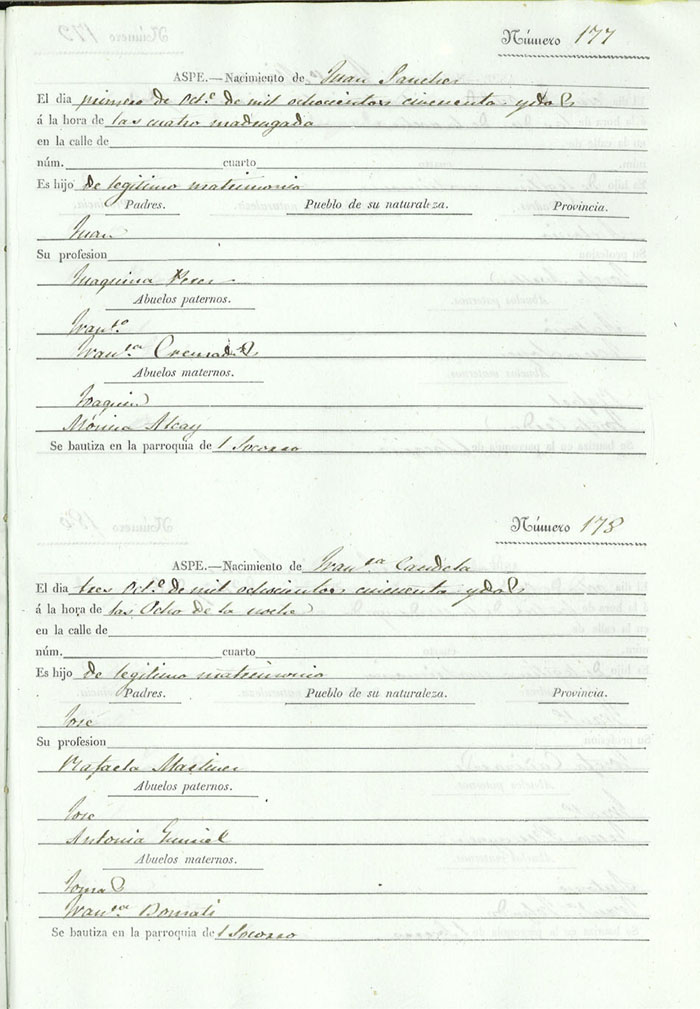 Número 177
ASPE.—Nacimiento de Juan Sanchez
El dia primero de Oct.e de mil ochocientos cincuenta y dos
á la hora de las cuatro madrugada
en la calle de
núm. cuarto
Es hijo de legitimo matrimonio
Padres. Pueblo de su naturaleza. Provincia.
Juan
Su profesion
Joaquina Perez
Abuelos paternos.
Fran.co
Fran.ca Cremades
Abuelos maternos.
Joaquin
Mónica Alcay
Se bautiza en la parroquia de l Socorro
Número 178
ASPE.—Nacimiento de Fran.ca Candela
El dia tres Oct.e de mil ochocientos cincuenta y dos
á la hora de las Ocho de la noche
en la calle de
núm. cuarto
Es hijo de legitimo matrimonio
Padres. Pueblo de su naturaleza. Provincia.
José
Su profesion
Rafaela Martinez
Abuelos paternos.
José
Antonia
Abuelos maternos.
Tomas
Fran.ca Bonmati
Se bautiza en la parroquia de l Socorro